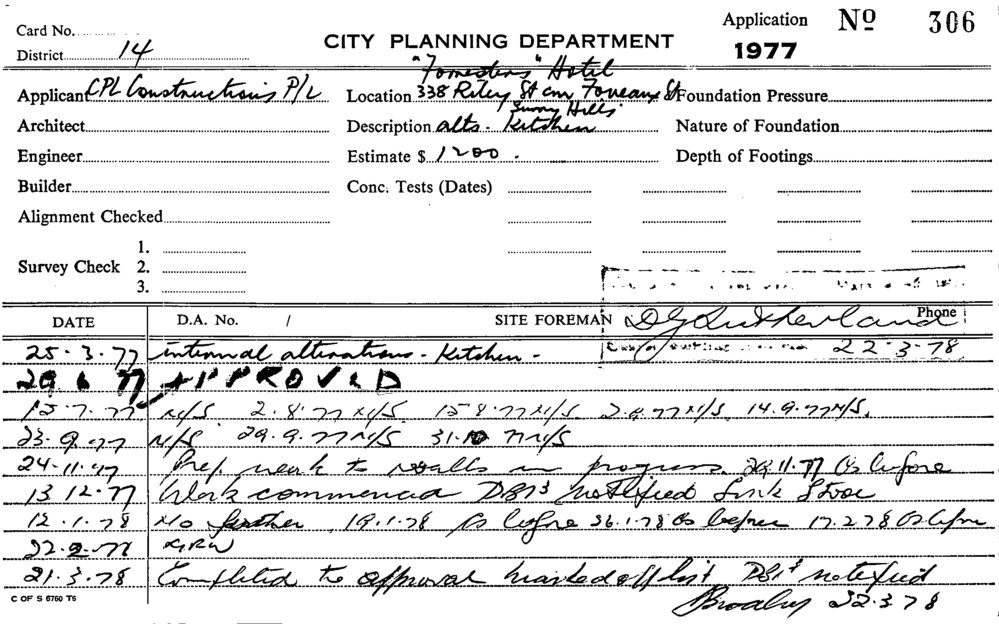 Card No. Application No 306
District 14 CITY PLANNING DEPARTMENT 1977
"Forresters" Hotel
Applicant CPL Constructions P/L Location 338 Riley St cnr Foveaux St Foundation Pressure
Surry Hills
Architect Description alts - Kitchen Nature of Foundation
Engineer Estimate $ 1200. Depth of Footings
Builder Conc. Tests (Dates)
Alignment Checked
1.
Survey Check 2.
3.
DATE D.A. No. / SITE FOREMAN D G Sutherland Phone
25.3.77 internal alterations - Kitchen - 22.3.78
29 6 77 APPROVED
15.7.77 N/S 2.8.77 N/S 15 8.77 N/S 2.9.77 N/S 14.9.77 N/S.
23.9.77 N/S 29.9.77 N/S 31.10 77 N/S
24.11.77 Prep. work to walls in progress. 29.11.77 As before
13 12.77 Work commenced notified
12.1.78 No further 19.1.78 As before 26.1.78 As before 17.2.78 As before
22.2.78
21.3.78 Completed to approval marked off list notified
22.3.78
C OF S 6760 T6